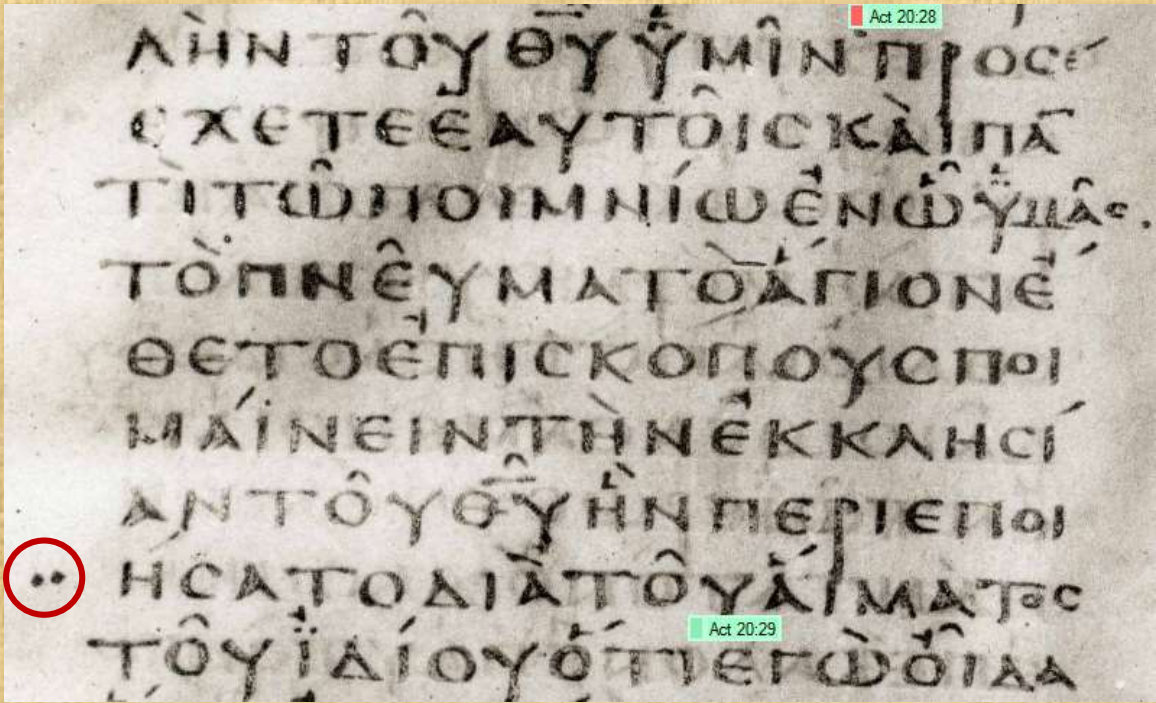 Act 20:28
ΛῊΝΤΟ͂ΥΘ̅Υ̅Ὑ̈ΜΙ͂ΝΠΡΟϹΈ
ΕΧΕΤΕἘΑΥΤΟ͂ΙϹΚᾺΙΠΑ̅
ΤῚΤΩ͂ΠΟΙΜΝΊΩἘΝὯΫΜΑ͂Ϲ.
ΤῸΠΝΕ͂ΥΜΑΤῸἍΓΙΟΝἜ
ΘΕΤΟἘΠΙϹΚΟΠΟΥϹΠΟΙ
ΜΆΙΝΕΙΝΤῊΝἘΚΚΛΗϹΊ
ΑΝΤΟ͂ΥΘ̅Υ̅ἫΝΠΕΡΙΕΠΟΙ
ΗϹΑΤΟΔΙᾺΤΟ͂ΥἍΙΜΑΤΟϹ
Act 20:29
ΤΟ͂ΥΪΔΊΟΥὍΤΙΕΓῺὈ͂ΙΔΑ